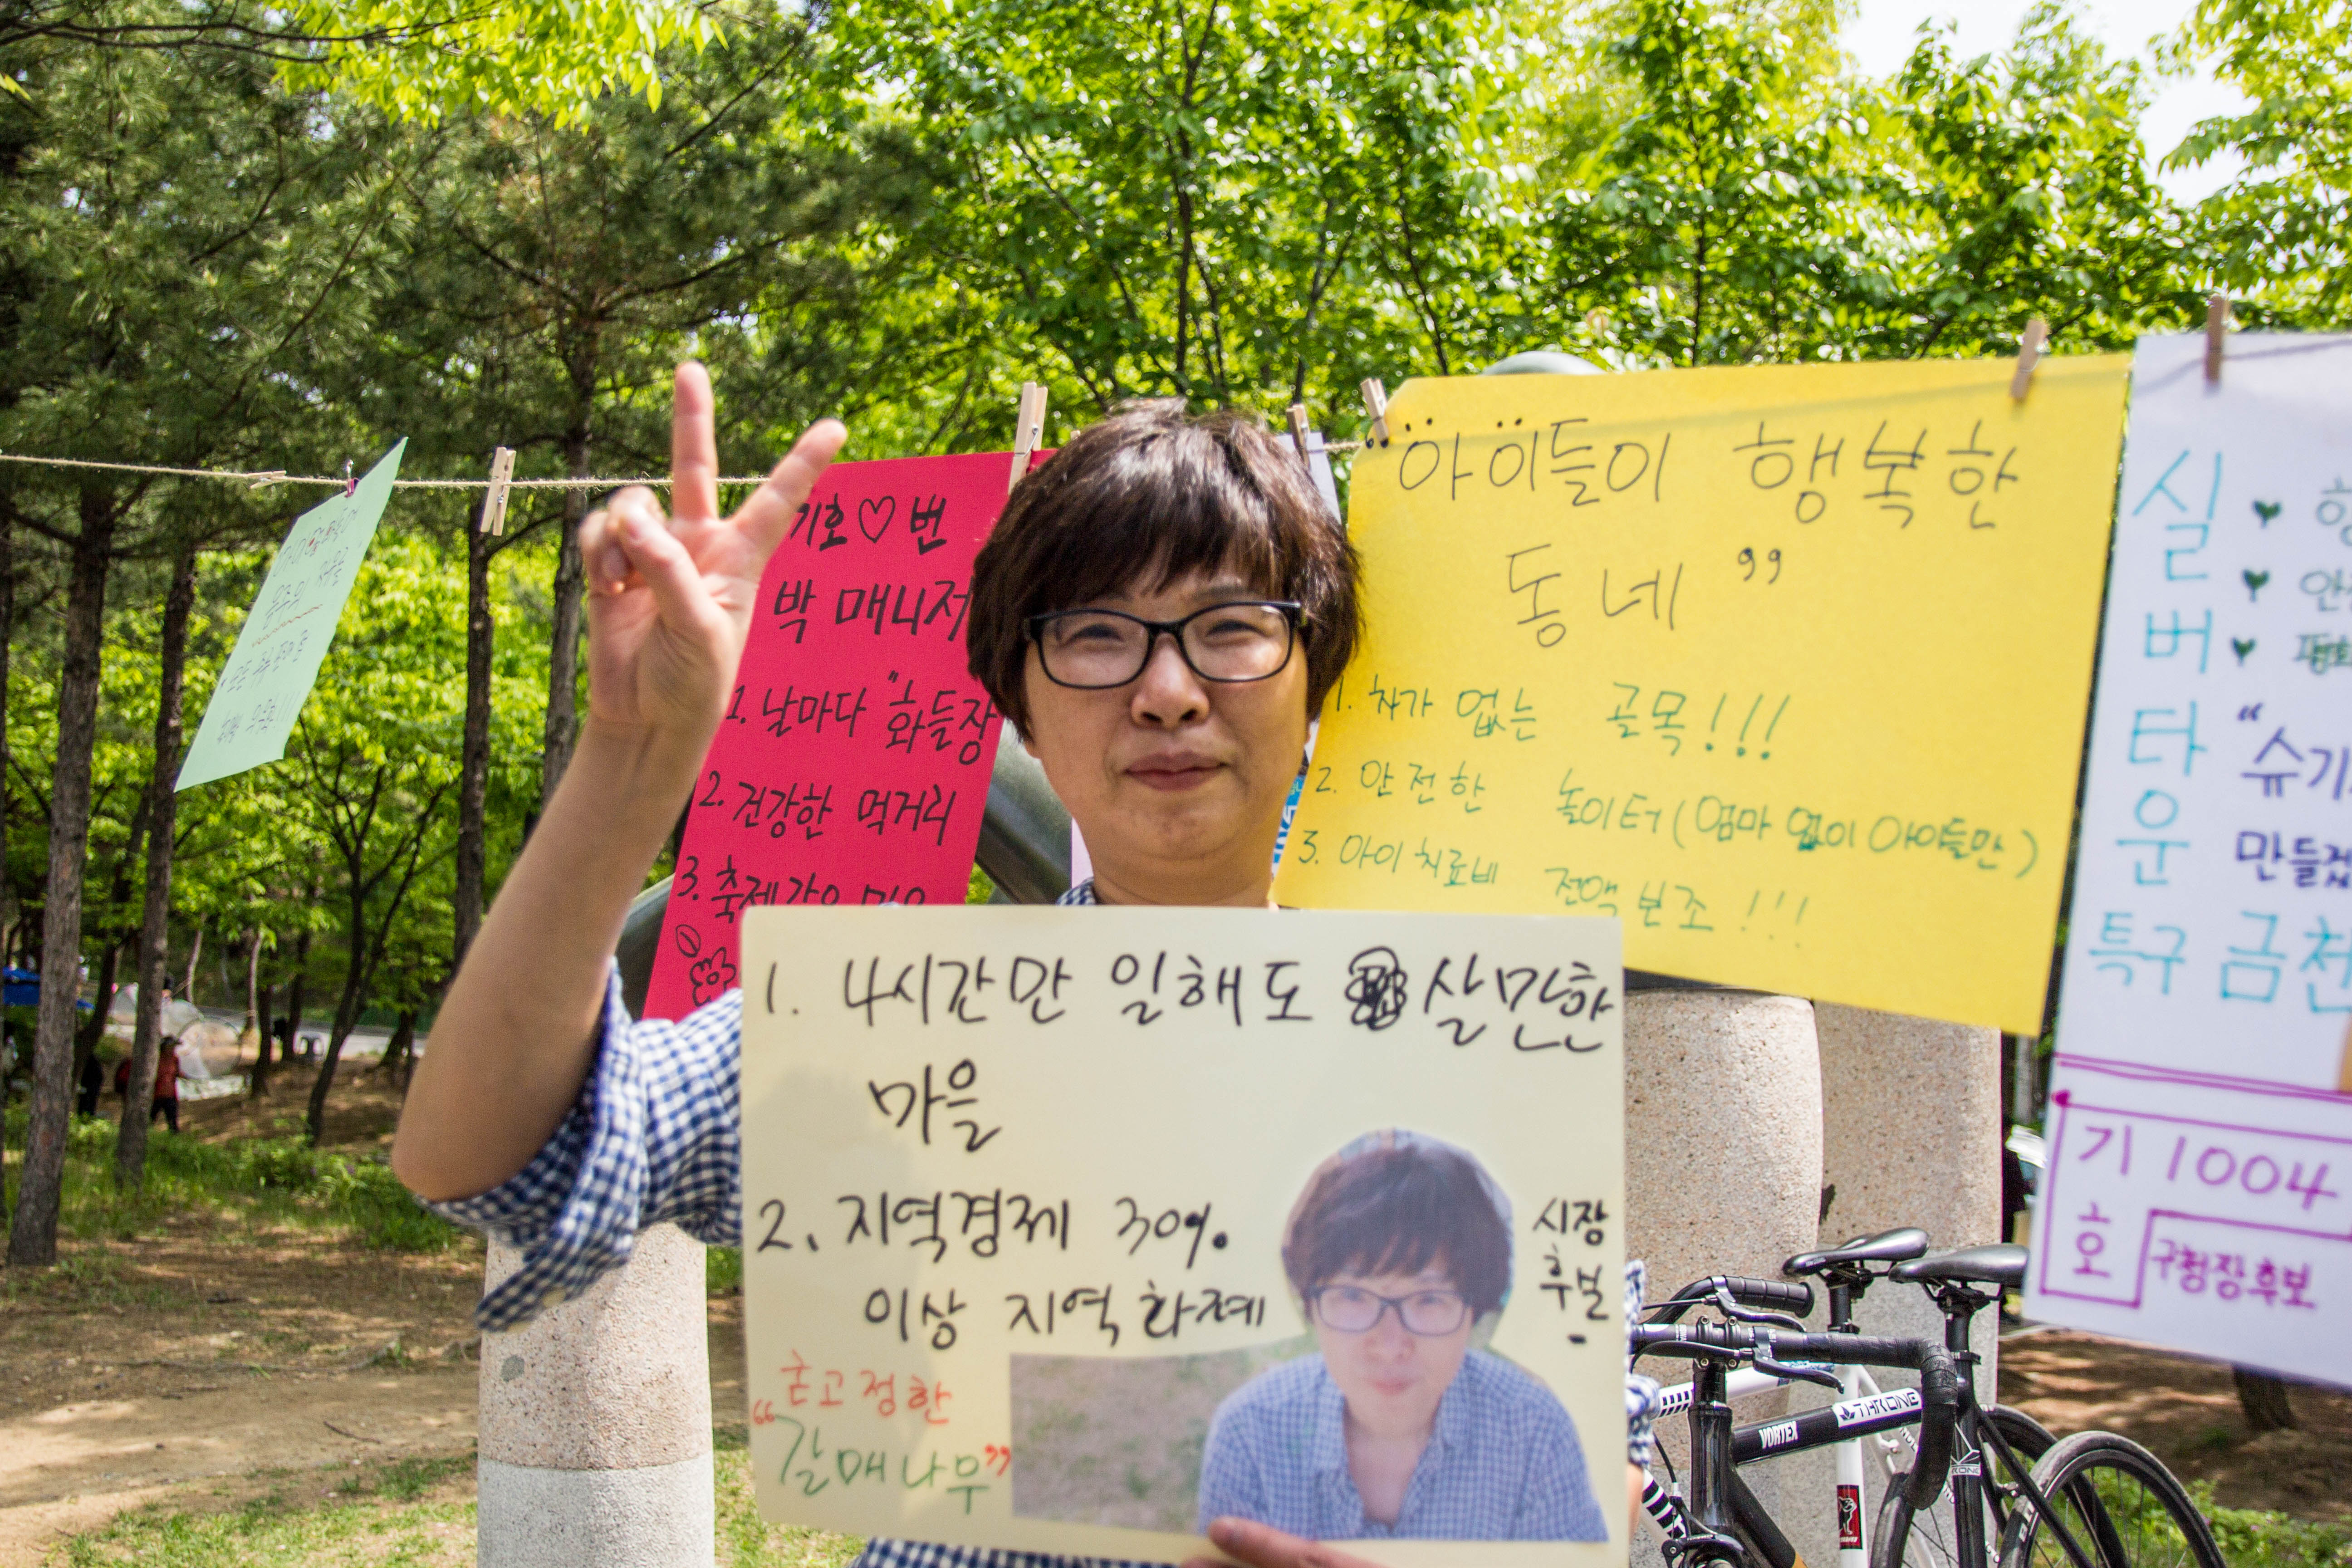 기호♡번
박 매니저
1. 날마다 "화들장
2. 건강한 먹거리
3. 축제같은
"아이들이 행복한
동네"
1. 차가 없는 골목!!!
2. 안전한 놀이터(엄마 없이 아이들만)
3. 아이 치료비 전액 보조!!!
실버타운
특구 금천
"슈기
만들겠
기호
1004
구청장후보
1. 4시간만 일해도 살만한
마을
2. 지역경제 30%
이상 지역화폐
시장
후보
"굳고정한
갈매나무"
VORTEX
THRONE